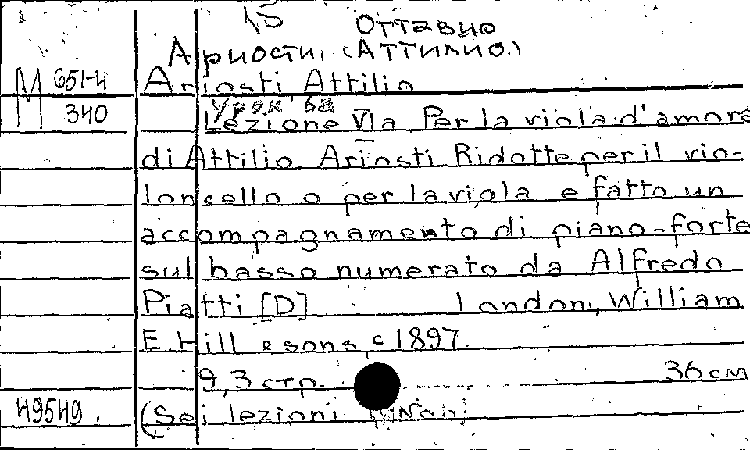 15 Оттавио
Ариости, (Аттилио.)
М 651-4 Ariosti Attilio
340 Урок 6й
Lezione VIa Per la viola d'amore
di Attilio Ariosti Ridotte per il vio-
loncello o per la viola e fatto un
accompagnamento di piano-forte
sul basso numerato da Alfredo
Piatti [D] London, William
E. Hill e sons, c 1897.
9,3 стр. 36 см
49549. (Sei lezioni